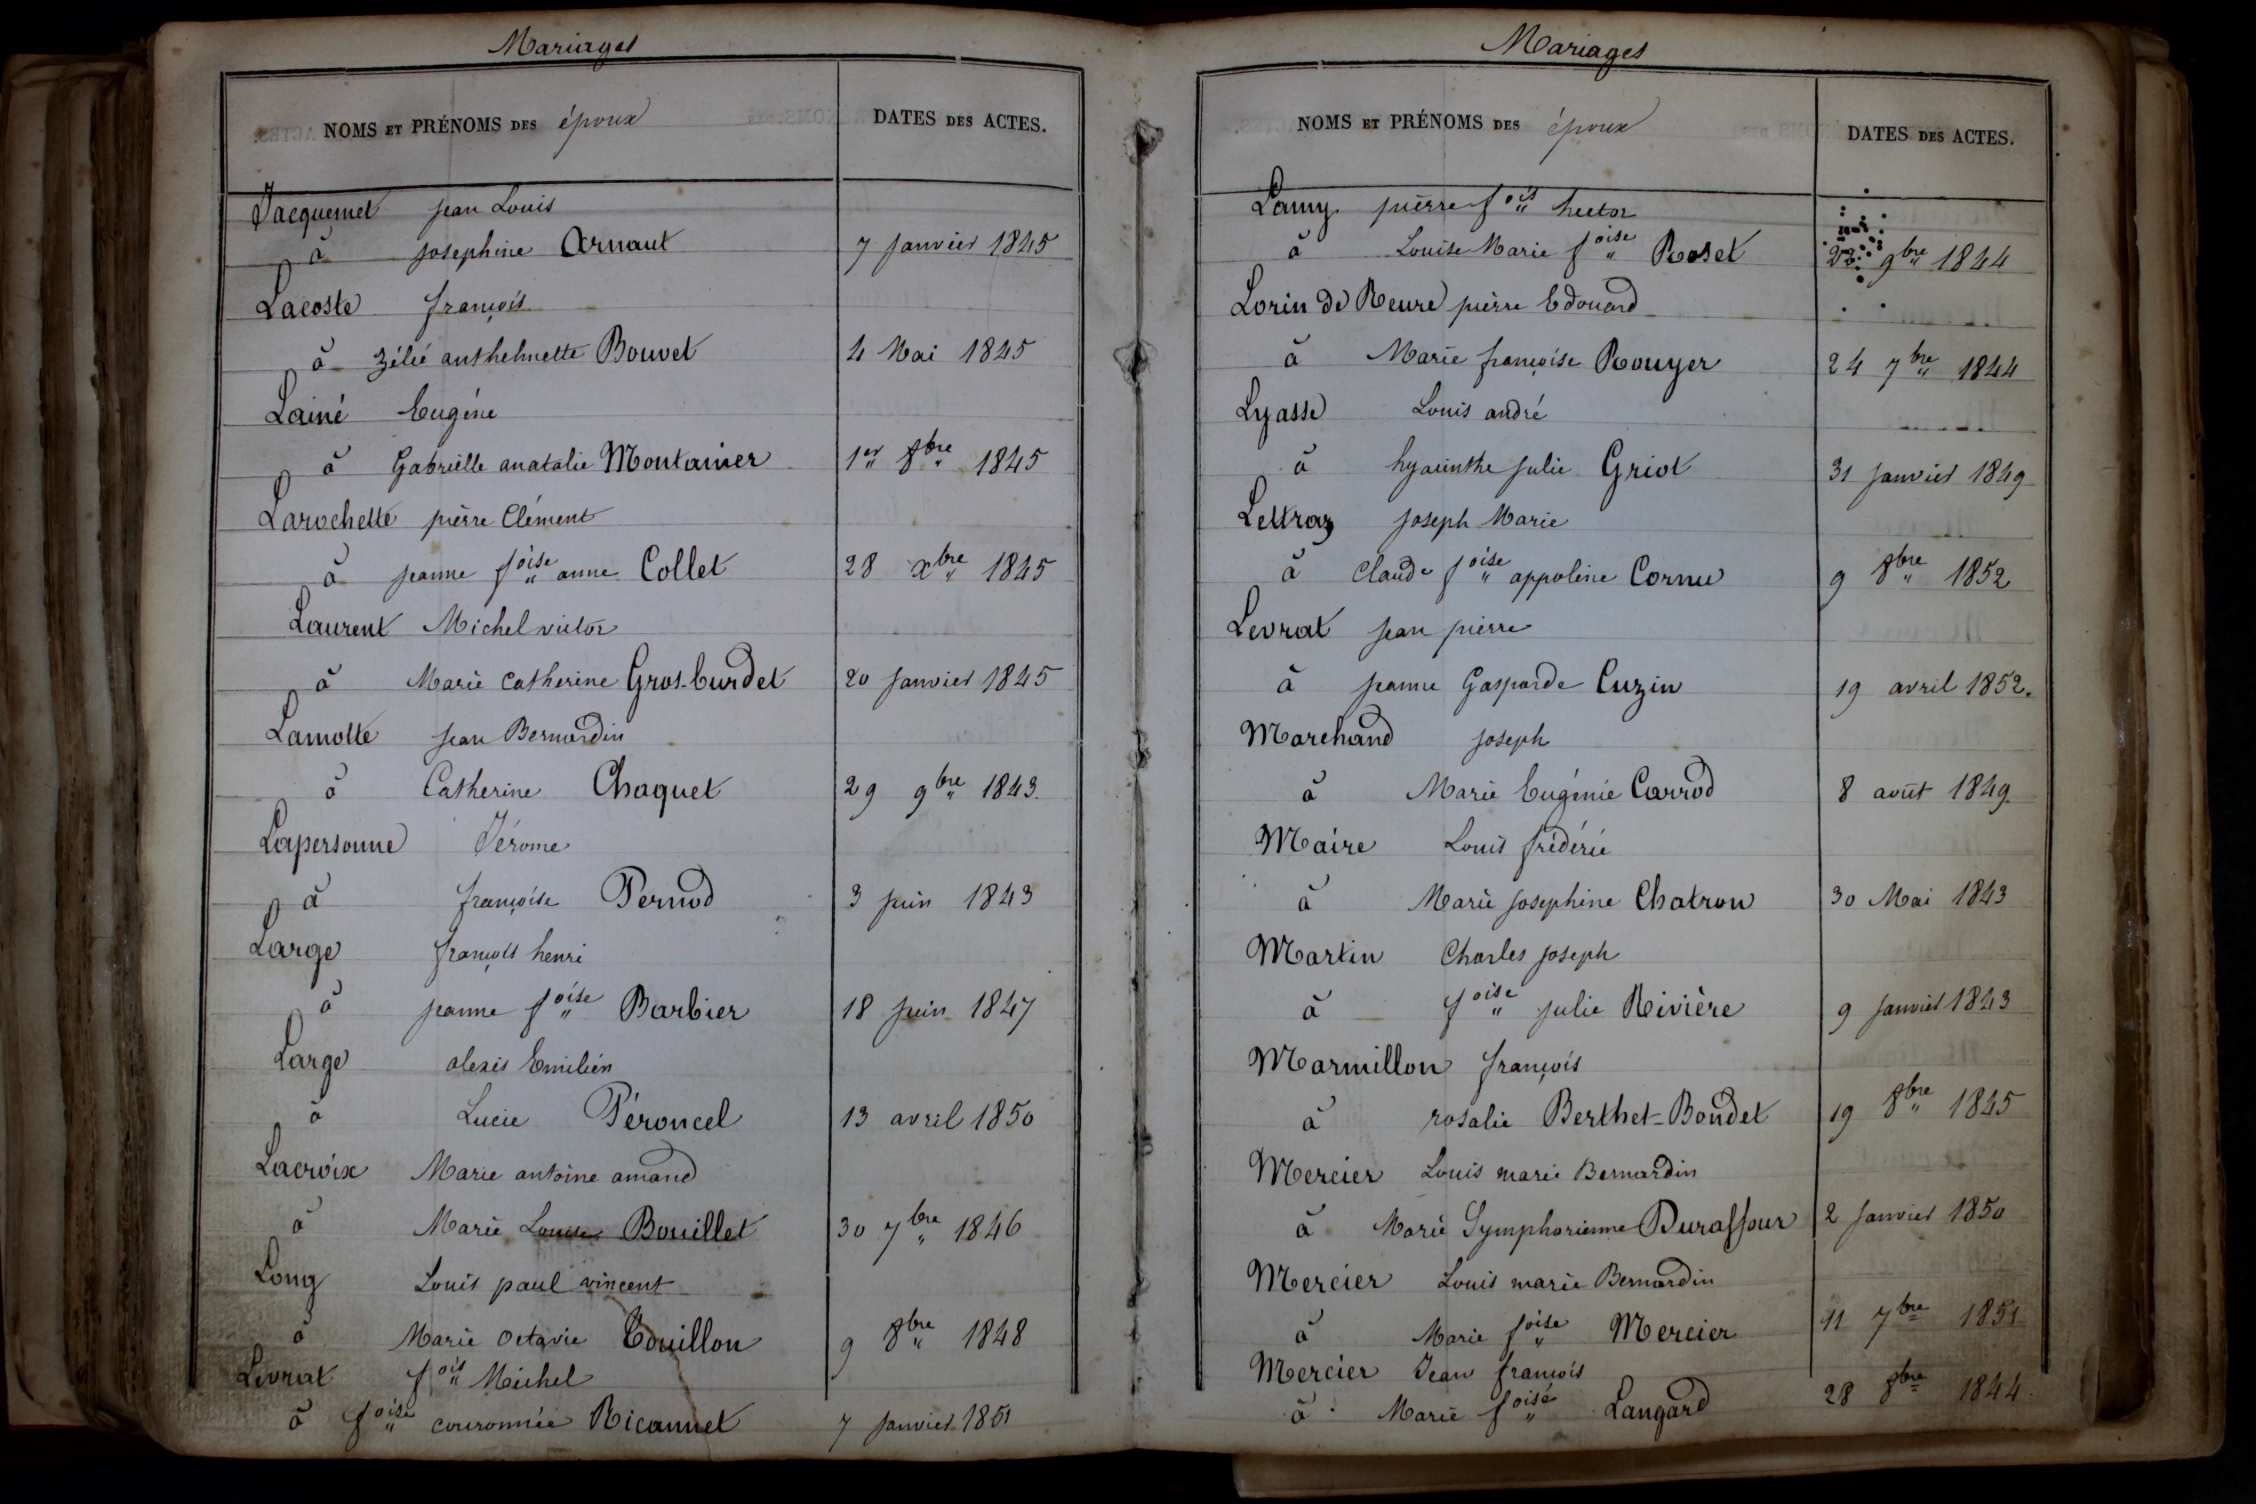 Mariages
NOMS ET PRÉNOMS DES époux DATES DES ACTES.
Jacquemet jean Louis
à josephine Arnaut 7 janvier 1845
Lacoste françois
à Zélie anthelmette Bouvet 4 Mai 1845
Lainé Eugéne
à Gabrielle anatalie Montanier 1er 8bre 1845
Larochette pierre Clément
à jeanne foise anne Collet 28 xbre 1845
Laurent Michel victor
à Marie catherine Gros-burdet 20 janvier 1845
Lamotte jean Bernardin
à Catherine Chaquet 29 9bre 1843.
Lapersonne Jérome
à françoise Pernod 3 juin 1843
Large françois henri
à jeanne foise Barbier 18 juin 1847
Large alexis Emilien
à Lucie Péroncel 13 avril 1850
Lacroix Marie antoine amand
à Marie Louise Bouillet 30 7bre 1846
Long Louis paul vincent
à Marie octavie Touillon 9 8bre 1848
Levrat fois Michel
à foise couronnée Ricannet 7 janvier 1851
Mariages
NOMS ET PRÉNOMS DES époux DATES DES ACTES.
Lamy pierre fois hector
à Louise Marie foise Roset 9bre 1844
Lorin de Reure pierre Edouard
à Marie françoise Rouyer 24 7bre 1844
Lyasse Louis andré
à hyacinthe julie Griot 31 janvier 1849
Lettraz joseph Marie
à Claude foise appoline Cornu 9 8bre 1852
Levrat jean pierre
à jeanne Gasparde Cuzin 19 avril 1852.
Marchand joseph
à Marie Eugénie Carrod 8 août 1849.
Maire Louis frédéric
à Marie josephine Chatron 30 Mai 1843
Martin Charles joseph
à foise julie Rivière 9 janvier 1843
Marmillon françois
à rosalie Berthet-Bondet 19 8bre 1845
Mercier Louis marie Bernardin
à Marie Symphorienne Duraffour 2 janvier 1850
Mercier Louis marie Bernardin
à Marie foise Mercier 11 7bre 1851
Mercier Jean françois
à Marie foise Langard 28 8bre 1844.